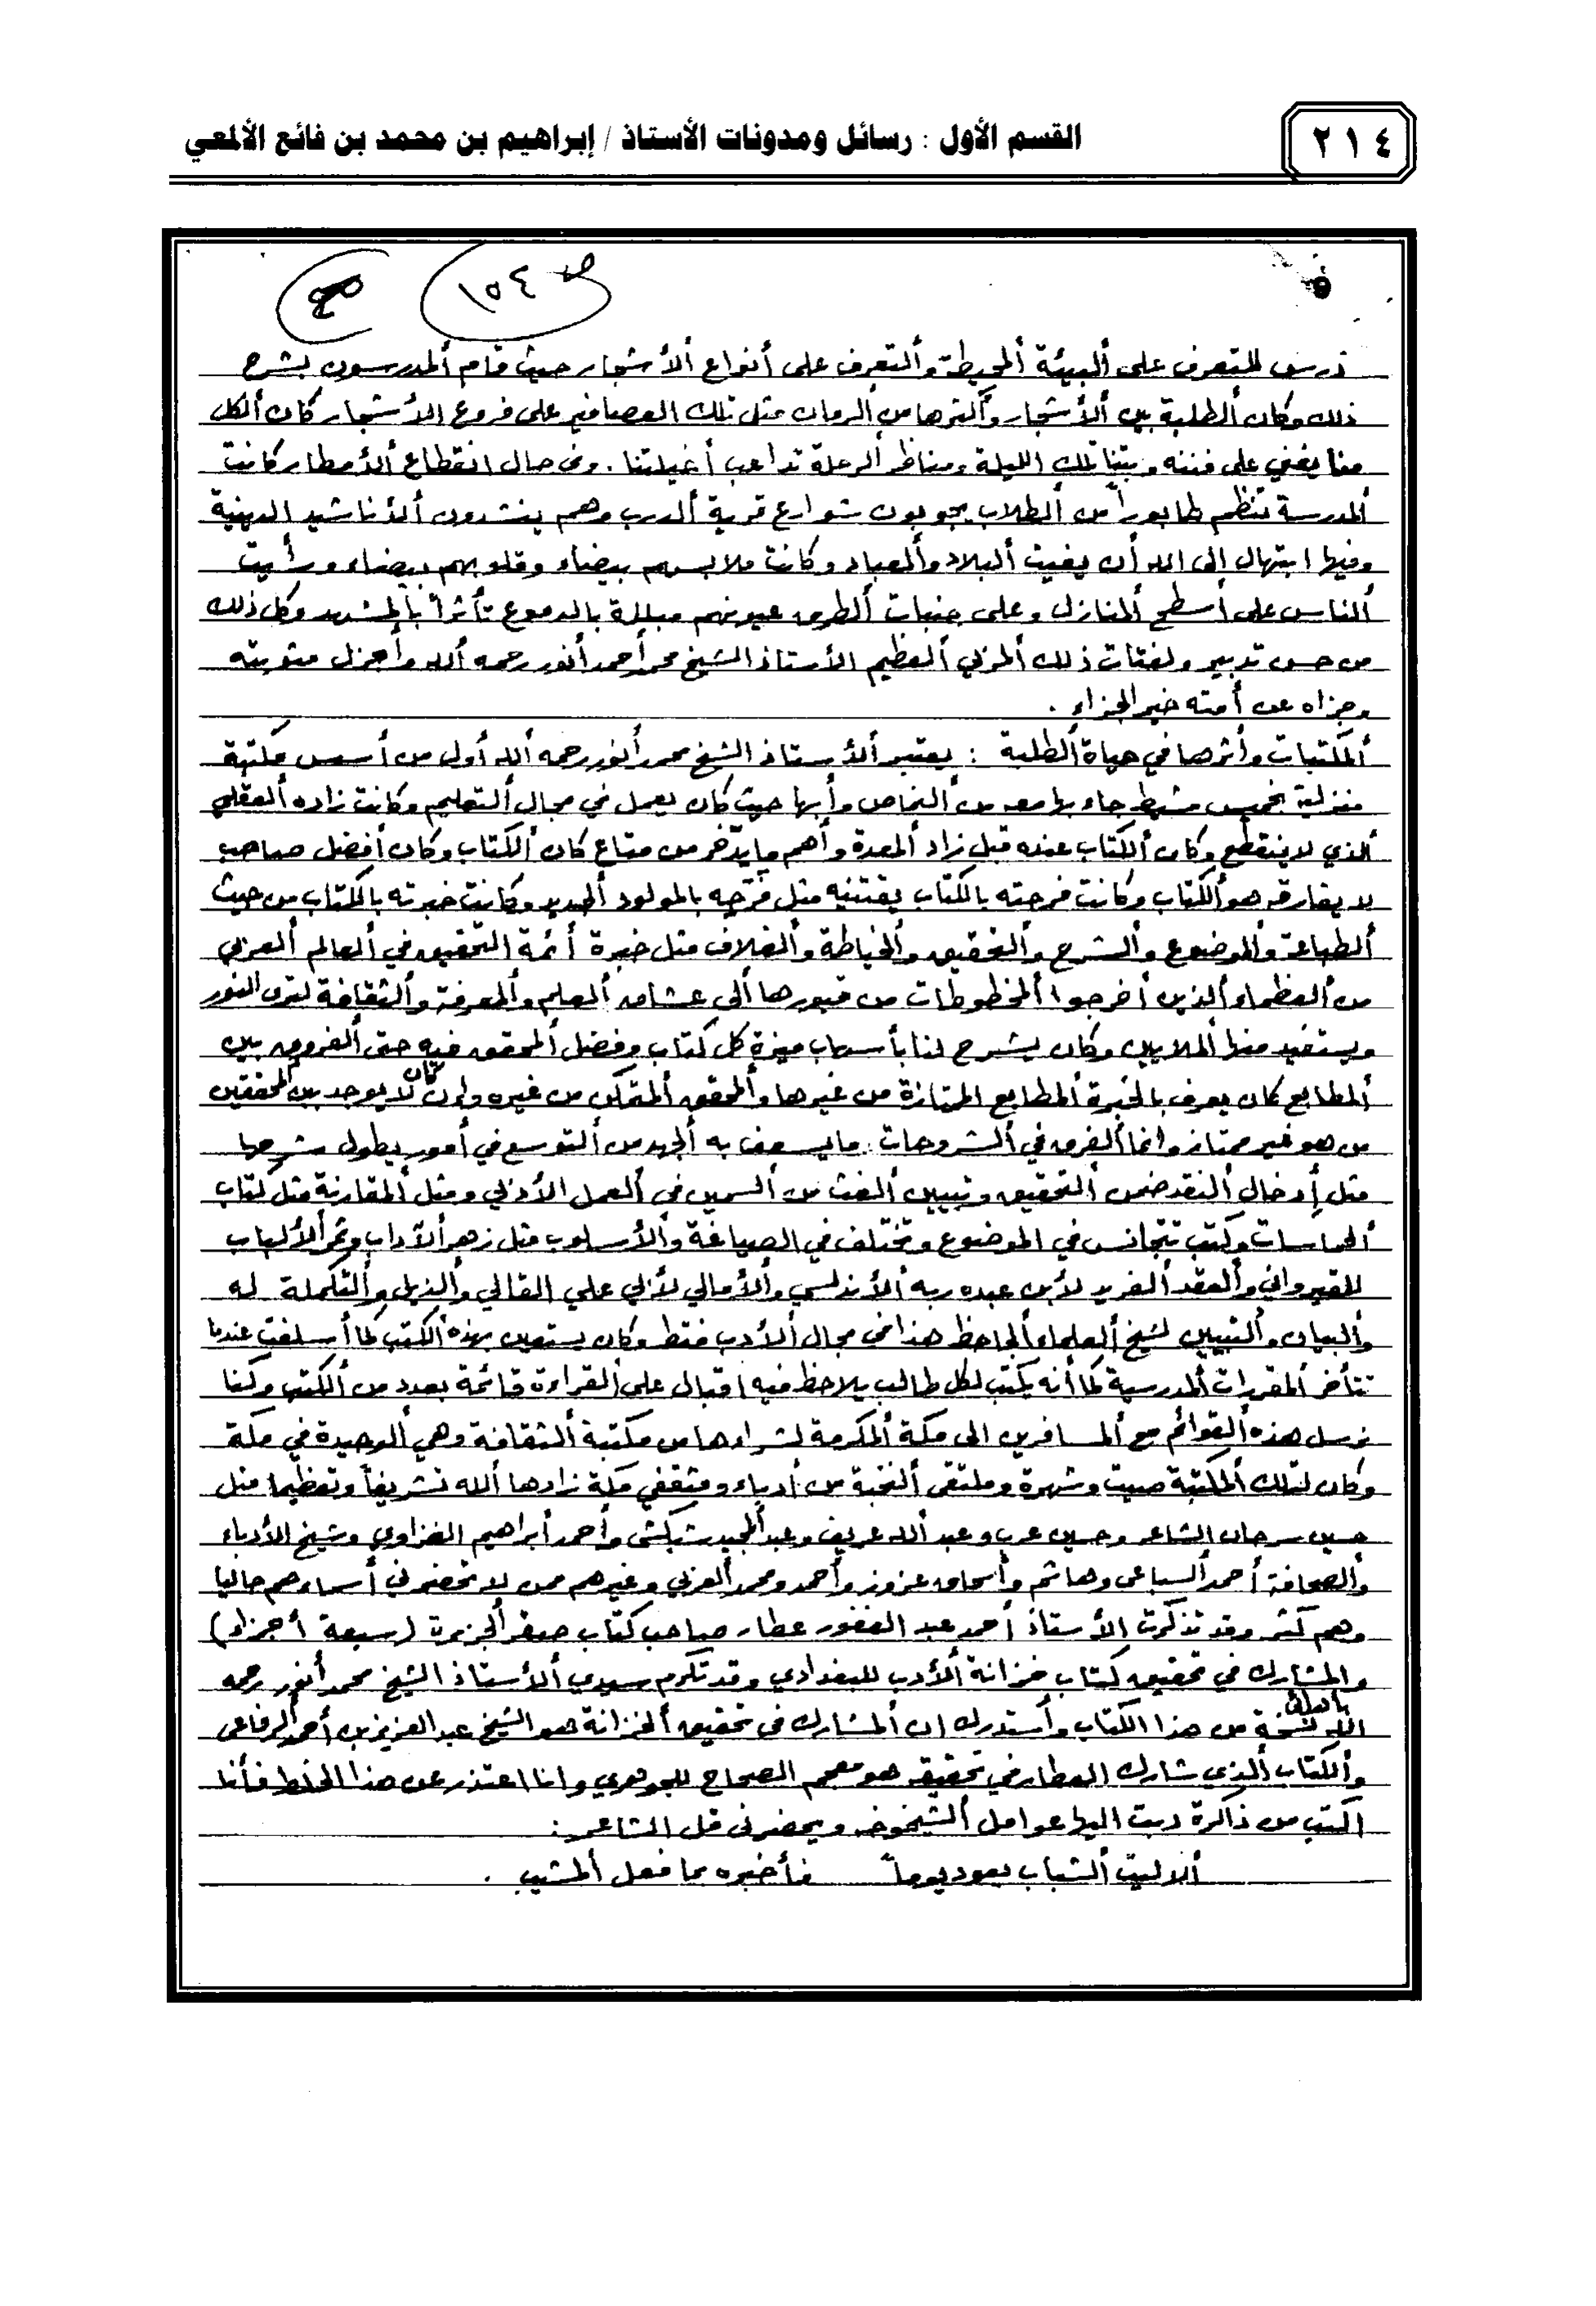 ٢١٤
القسم الأول : رسائل ومدونات الأستاذ / إبراهيم بن محمد بن فائع الألمعي
ص ١٥٤
درس للتعرف على ألبيئة ألمحيطة وألتعرف على أنواع ألأشجار حيث قام ألمدرسون بشرح
ذلك وكان ألطلبة بين ألأشجار وأكثرها من ألرمان مثل تلك العصافير على فروع الأشجار كان ألكل
منا يغني على فننه وبتنا تلك الليلة ومناظر ألرحلة تداعب أخيلتنا . وفي حال انقطاع ألأمطار كانت
ألمدرسة تنظم طابوراً من ألطلاب يجوبون شوارع قرية ألدرب وهم ينشدون ألأناشيد الدينية
وفيها ابتهال إلى الله أن يغيث ألبلاد وألعباد وكانت ملابسهم بيضاء وقلوبهم بيضاء ورأيت
ألناس على أسطح ألمنازل وعلى جنبات ألطرق عيونهم مبللة بالدموع تأثراً بألمشهد وكل ذلك
من حسن تدبير ولفتات ذلك ألمربي ألعظيم الأستاذ الشيخ محمد أحمد أنور رحمه ألله وأجزل مثوبته
وجزاه عن أمته خير الجزاء .
ألمكتبات وأثرها في حياة ألطلبة : يعتبر ألأستاذ الشيخ محمد أنور رحمه الله أول من أسس مكتبة
منزلية بخميس مشيط جاء بها معه من ألنماص وأبها حيث كان يعمل في مجال ألتعليم وكانت زاده ألعقلي
ألذي لا ينقطع وكان ألكتاب عنده قبل زاد ألمعدة وأهم ما يدّخر من متاع كان ألكتاب وكان أفضل صاحب
لا يفارقه هو ألكتاب وكانت فرحته بالكتاب يقتنيه مثل فرحه بالمولود ألجديد وكانت خبرته بالكتاب من حيث
ألطباعة وألموضوع وألشرح وألتحقيق وألخياطة وألغلاف مثل خبرة أئمة التحقيق في ألعالم ألعربي
من ألعظماء ألذين أخرجوا ألمخطوطات من قبورها ألى عشاق ألعلم وألمعرفة وألثقافة لترى النور
ويستفيد منها ألملايين وكان يشرح لنا بأسهاب ميزة كل كتاب وفضل ألمحقق فيه حتى ألفروق بين
ألمطابع كان يعرف بالخبرة ألمطابع الممتازة من غيرها وألمحقق ألمتمكن من غيره وإن كان لا يوجد بين ألمحققين
من هو غير ممتاز وانما ألفرق في ألشروحات . ما يسعف به ألجهد من ألتوسع في أمور يطول شرحها
مثل إدخال ألنقد ضمن ألتحقيق وتبيين ألغث من ألسمين في ألعمل الأدبي ومثل ألمقارنة مثل كتاب
ألحماسات وكتب تتجانس في الموضوع وتختلف في الصياغة وألأسلوب مثل زهر ألآداب وثمر ألألباب
للقيرواني وألعقد ألفريد لأبن عبد ربه ألأندلسي وألأمالي لأبي علي القالي وألذيل وألتكملة له
وألبيان وألتبيين لشيخ ألعلماء ألجاحظ هذا في مجال ألأدب فقط وكان يستعين بهذه ألكتب كما أسلفت عندما
تتأخر ألمقررات ألمدرسية كما أنه يكتب لكل طالب يلاحظ فيه إقبال على ألقراءة قائمة بعدد من ألكتب وكنا
نرسل هذه ألقوائم مع ألمسافرين الى مكة ألمكرمة لشراءها من مكتبة ألثقافة وهي ألوحيدة في مكة
وكان لتلك ألمكتبة صيت وشهرة وملتقى ألنخبة من أدباء ومثقفي مكة زادها ألله تشريفاً وتعظيما مثل
حسين سرحان الشاعر وحسين عرب وعبد ألله عريف وعبد ألمجيد شبكشى وأحمد أبراهيم الغزاوي وشيخ الأدباء
وألصحافة أحمد ألسباعى وهاشم وأسحاق عزوز وأحمد ومحمد ألعربي وغيرهم ممن لا تحضرني أسماءهم حاليا
وهم كثر وقد تذكرت الأستاذ أحمد عبد الغفور عطار صاحب كتاب صقر ألجزيرة (سبعة أجزاء)
والمشارك في تحقيق كتاب خزانة ألأدب للبغدادي وقد تكرم سيدي ألأستاذ الشيخ محمد أنور رحمه
الله بأهدائي نسخة من هذا الكتاب وأستدرك ان ألمشارك في تحقيق ألخزانة هو الشيخ عبد العزيز بن أحمد ألرفاعى
وألكتاب ألذي شارك العطار في تحقيقه هو معجم الصحاح للجوهري وانا اعتذر عن هذا الخلط فأنا
اكتب من ذاكرة دبت اليها عوامل ألشيخوخه ويحضرنى قول الشاعر :
ألا ليت ألشباب يعود يوماً      فأخبره بما فعل ألمشيب .